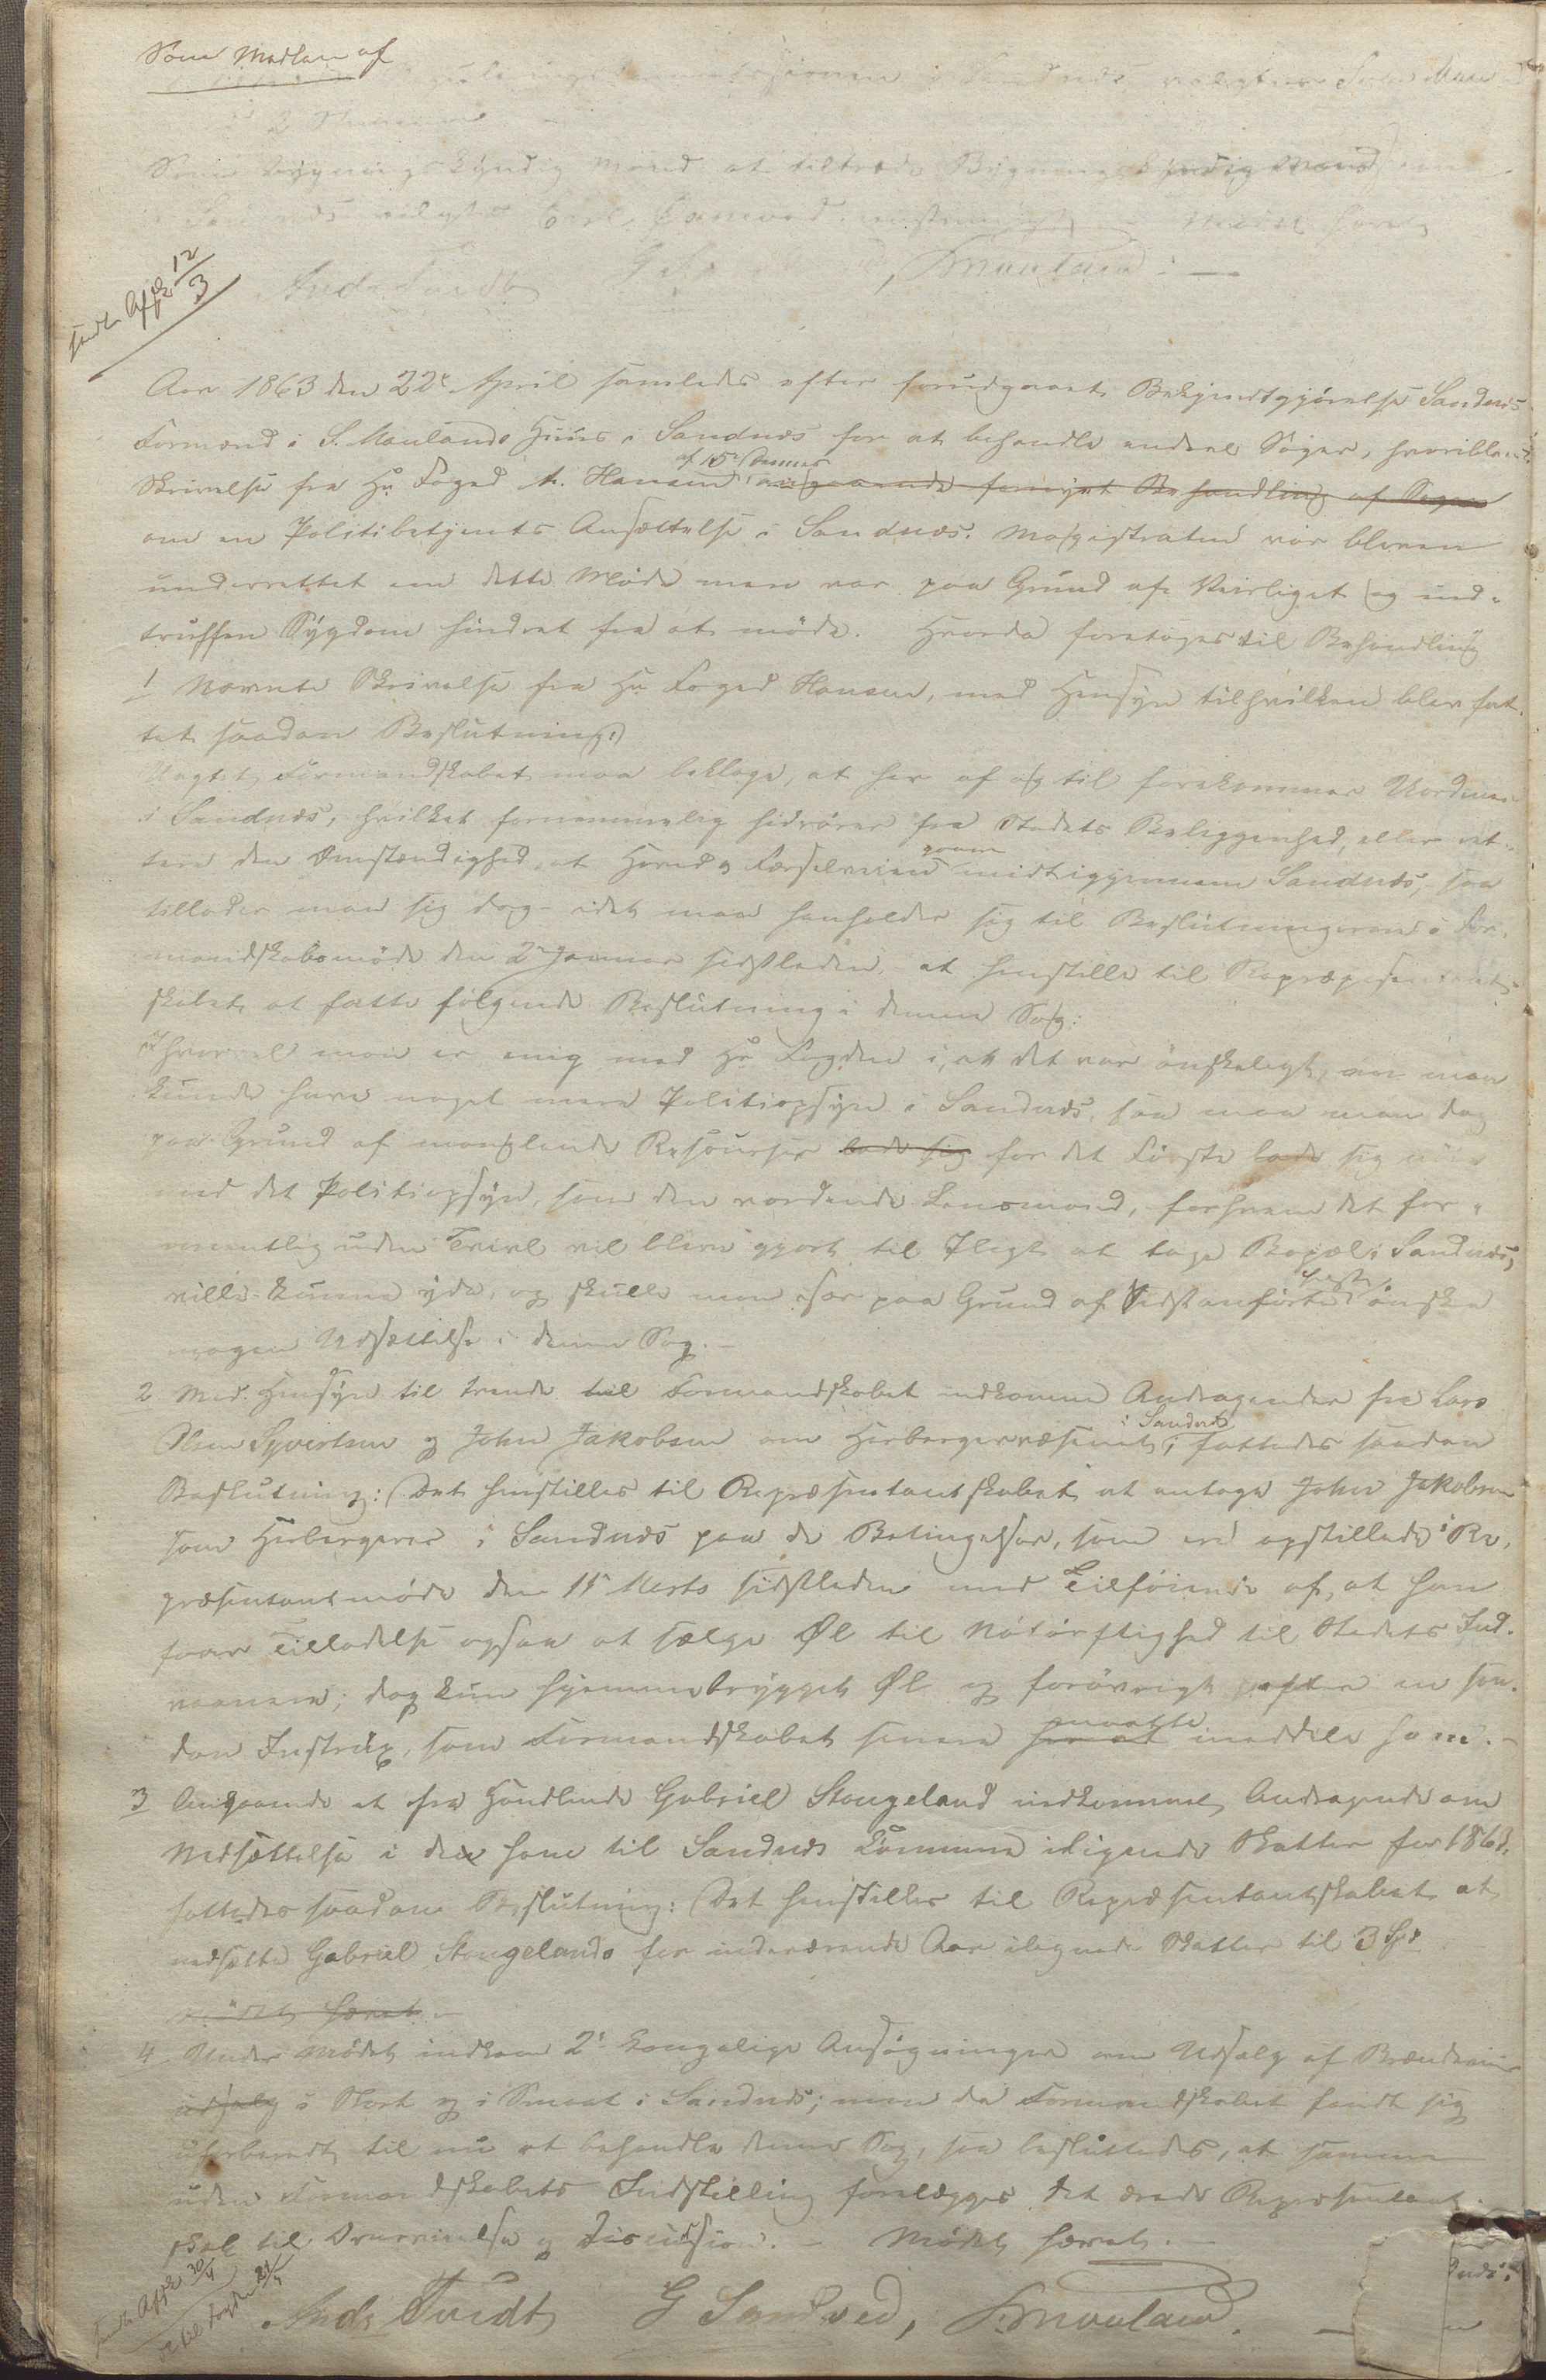 Som Medlem af
i Sandnæs valgtes
2 Stemmer
Som bygningskyndig Mand at tiltræde Bygnings
i Sandnæs valgtes Mødet hævet
Ands Tvedt G S Mauland.
Sendt Afskr 12/3
Aar 1863 den 22de April samledes efter forudgaaet Bekjendtgjörelse Sandnæs
Formænd i S. Maulands Huus i Sandnæs for at behandle endeel Sager, hvoriblandt
Skrivelse fra Hr. Foged A. Hansen af 15de Januar angaaende fornyet Behandling af Sagen
om en Politibetjents Ansættelse i Sandnæs. Magistraten var bleven
underrettet om dette Møde men var paa Grund af Veirliget og ind-
truffen Sygdom hindret fra at møde. Hvorda foretoges til Behandling
1 Nævnte Skrivelse fra Hr. Foged Hansen, med Hensyn til hvilken blev fat-
tet saadan Beslutning:
Uagtet Formandskabet maa beklage, at her af og til forekommer Uordener
i Sandnæs, hvilket fornemmelig hidrører fra Stedets Beliggenhed, eller ret-
tere den Omstændighed, at Hovedfærselveien gaaer midt igjennem Sandnæs, saa
tillader man sig dog - idet man henholder sig til Beslutningerne i For-
mandskabsmöde den 2den Januar sidstleden - at henstille til Repræsentant-
skabet at fatte følgende Beslutning i denne Sag:
Ihvorvel man er enig med Hr. Fogden i, at det var ønskeligt, om man
kunde have noget mere Politiopsyn i Sandnæs, saa maa man dog
paa Grund af manglende Resourser lade sig for det Første lade sig nöie
med det Politiopsyn, som den vordende Lensmand, forhvem det for-
mentlig uden Tvivl vil blive gjort til Pligt at tage Bopæl i Sandnæs,
ville kunne yde, og skulle man især paa Grund af Sidstanførte ønske
nogen Udsættelse i denne Sag.
2 Med Hensyn til trende til Formandskabet indkomne Andragender fra Lars
Olsen Syvertsen og John Jakobsen om Herbergerværsenet i Sandnæs, fattedes saadan
Beslutning: Det henstilles til Repræsentantskabet at antage John Jakobsen
som Herbergerer i Sandnæs paa de Betingelser, som ere opstillede i Re-
præsentantmöde den 11te Marts sidstleden med Tilföiende af, at han
faar Tilladelse ogsaa at sælge Øl til Nötörftighed til Stedets Ind-
vaanere; dog kun hjemmebrygget Øl og forövrigt efter en saa-
dan Instrux, som Formandskabet senere maatte meddele ham.
3 Angaaende et fra Handlende Gabriel Stangeland indkommet Andragende om
Nedsættelse i den ham til Sandnæs Kommune ilignede Skatter for 1863,
fattedes saadan Beslutning: Det henstilles til Repræsentantskabet at
nedsætte Gabriel Stangelands for indeværende Aar ilignede Skatter til 3 Spd.
Mødet hævet.
4 Under Mödet indkom 2de kongelige Ansögninger om Udsalg af Brændeviin
udsalg i Stort og i Smaat i Sandnæs; men da Formandskabet fandt sig
uforberedt til nu at behandle denne Sag, saa besluttedes, at samme
uden Formandskabets Indstilling forelægges det ærede Repræsentant-
skab til Overveielse og Discussion. - Mödet hævet.
Ands Tvedt G Sandved, S. Mauland.
Sendt Afskr 30/4